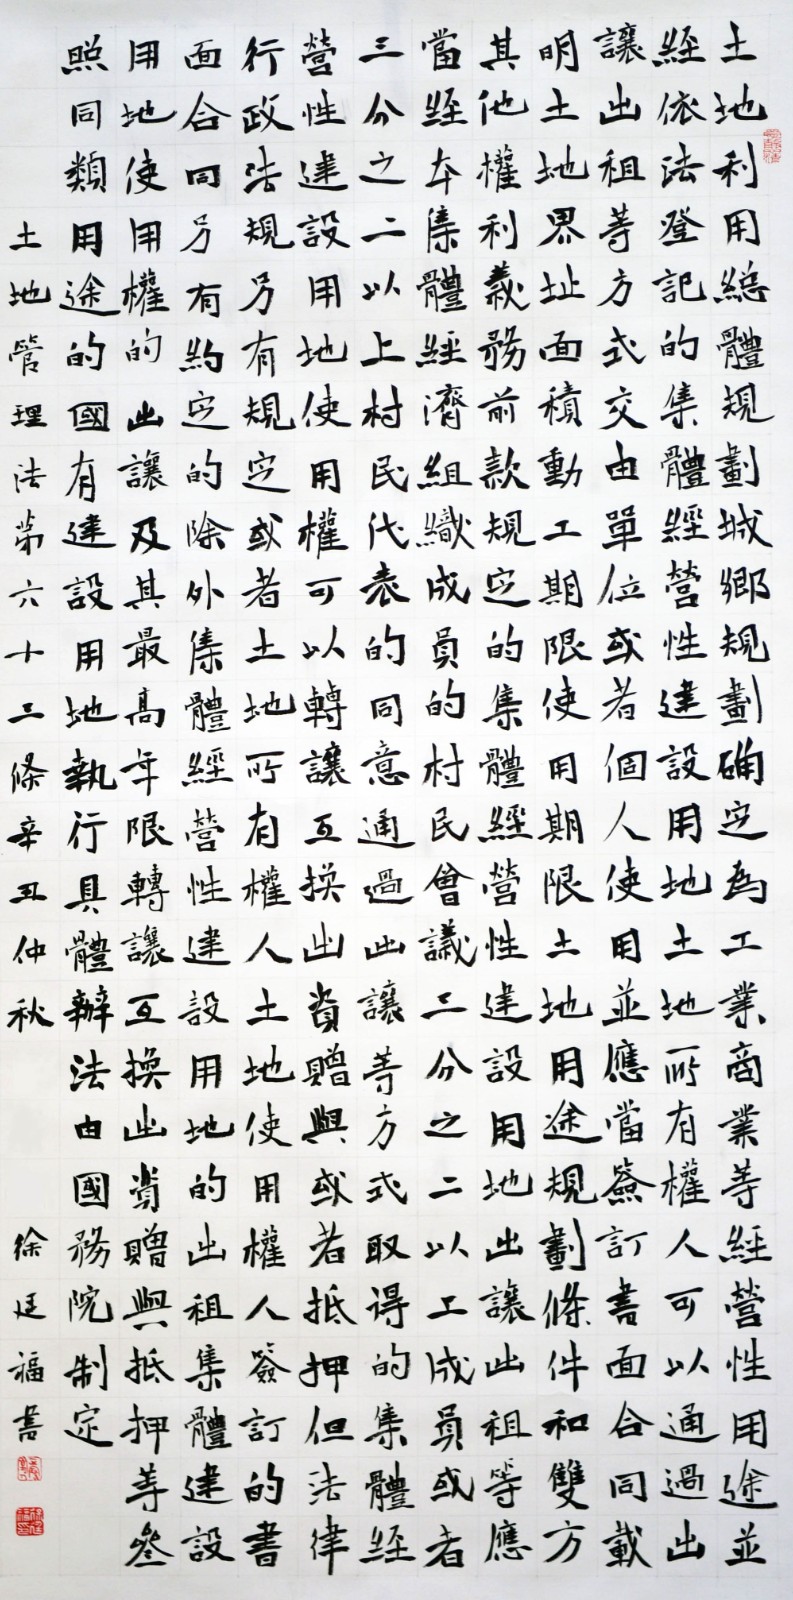 土地利用總體規劃城鄉規劃确定為工業商業等經營性用途並
經依法登記的集體經營性建設用地土地所有權人可以通過出
讓出租等方式交由單位或者個人使用並應當簽訂書面合同載
明土地界址面積動工期限使用期限土地用途規劃條件和雙方
其他權利義務前款規定的集體經營性建設用地出讓出租等應
當經本集體經濟組織成員的村民會議三分之二以上成員或者
三分之二以上村民代表的同意通過出讓等方式取得的集體經
營性建設用地使用權可以轉讓互換出資贈與或者抵押但法律
行政法規另有規定或者土地所有權人土地使用權人簽訂的書
面合同另有約定的除外集體經營性建設用地的出租集體建設
用地使用權的出讓及其最高年限轉讓互換出資贈與抵押等參
照同類用途的國有建設用地執行具體辦法由國務院制定
土地管理法第六十三條辛丑仲秋 徐廷福書